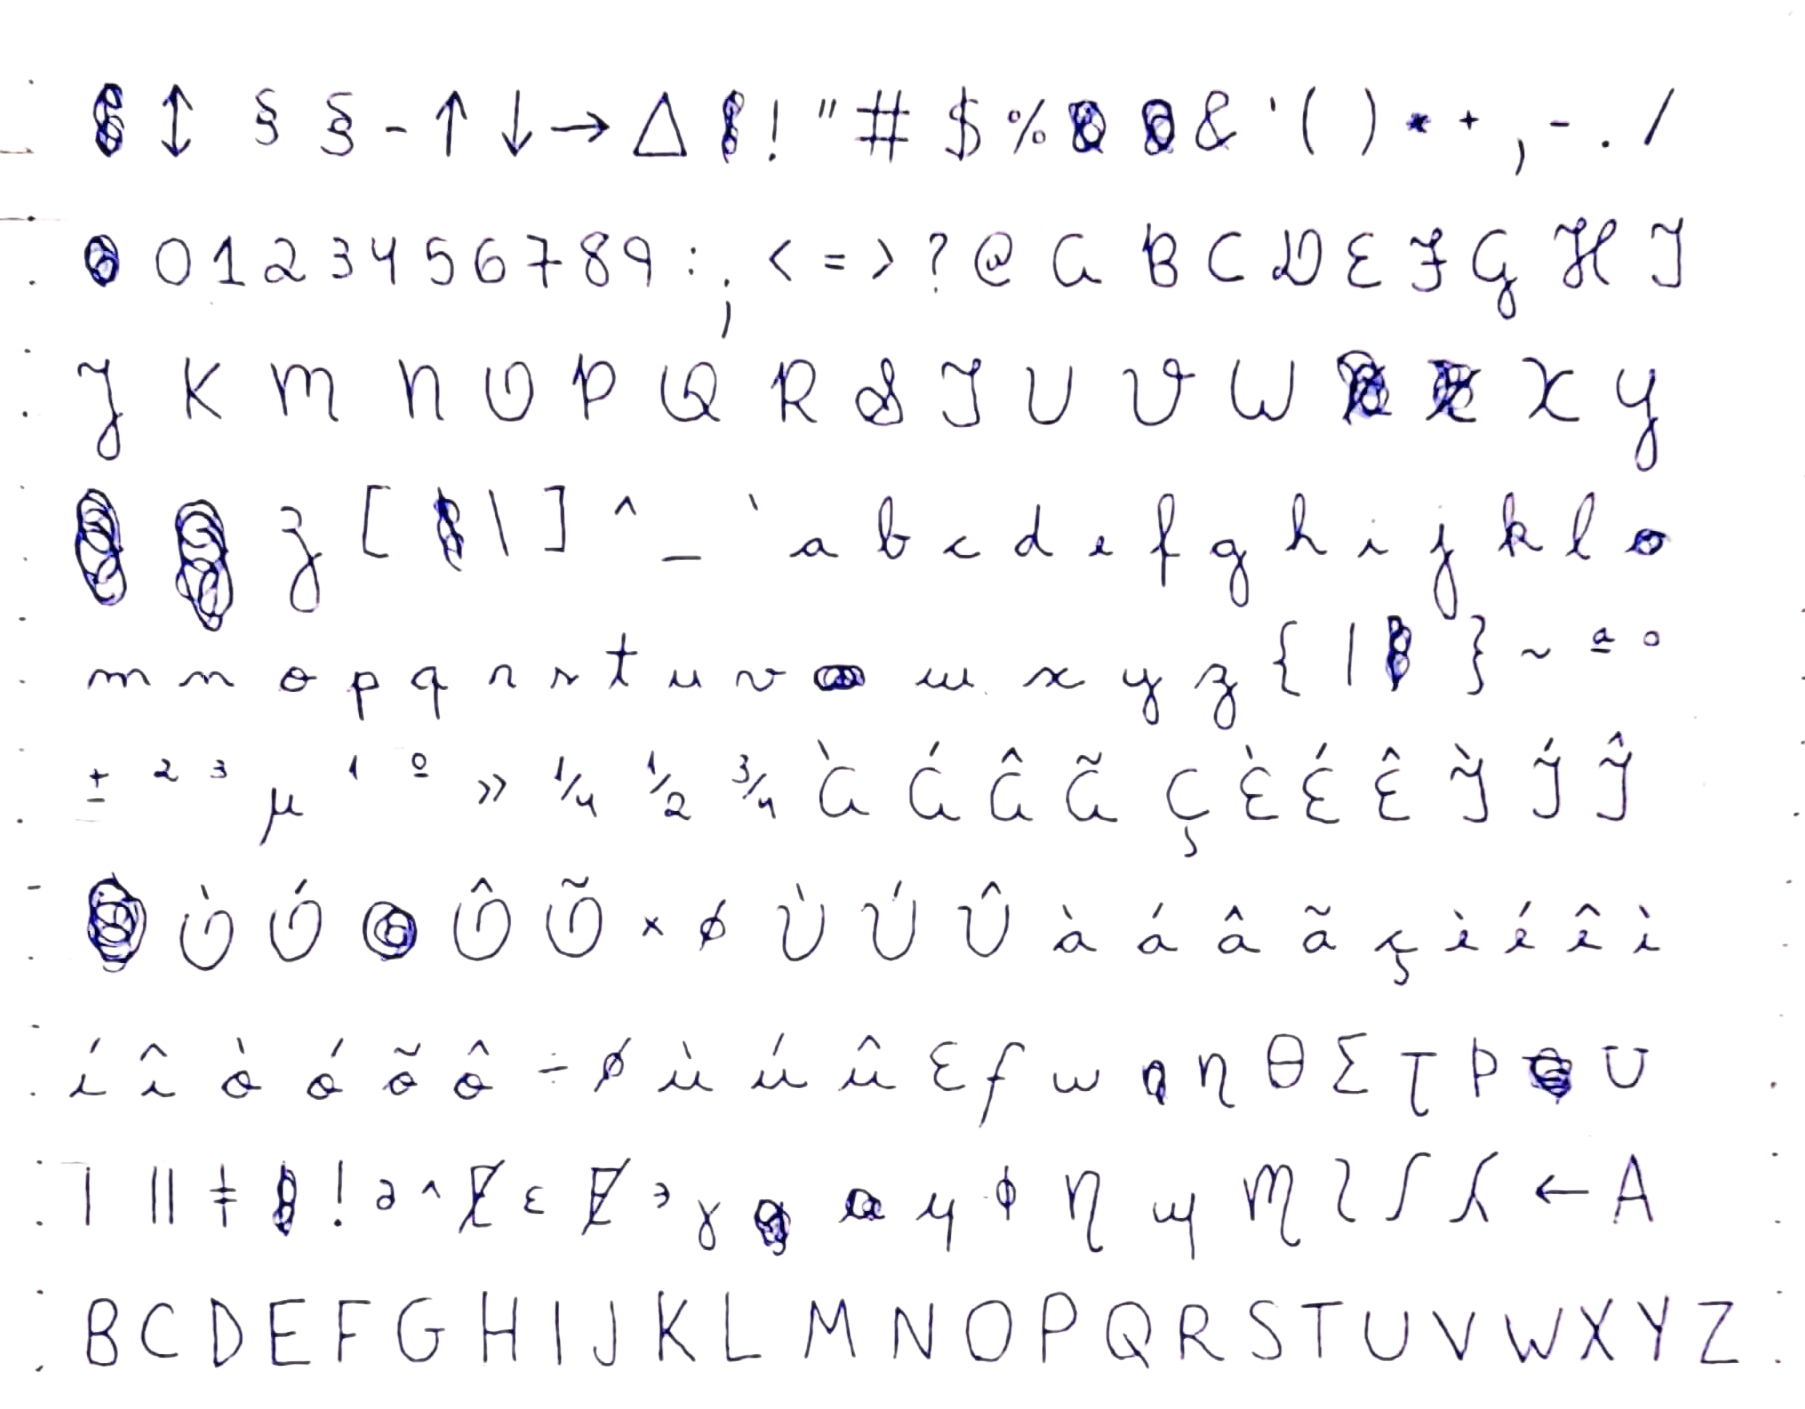 ↕ § § - ↑ ↓ → Δ ! " # $ % & ' ( ) * + , - . /
0 1 2 3 4 5 6 7 8 9 : ; < = > ? @ A B C D E F G H I
J K M N O P Q R S T U V W X Y
Z [ \ ] ^ _ ` a b c d e f g h i j k l
m n o p q r s t u v w x y z { | } ~ ª °
± ² ³ µ ¹ º » ¼ ½ ¾ À Á Â Ã Ç È É Ê Ì Í Î
Ò Ó Ô Õ × ø Ù Ú Û à á â ã ç è é ê ì
í î ò ó õ ô ÷ ø ù ú û Ɛ ƒ ω η θ Σ Ʈ Þ Ʋ
| ǁ ǂ ! ∂ ^ ɛ ɣ ɸ ← A
B C D E F G H I J K L M N O P Q R S T U V W X Y Z